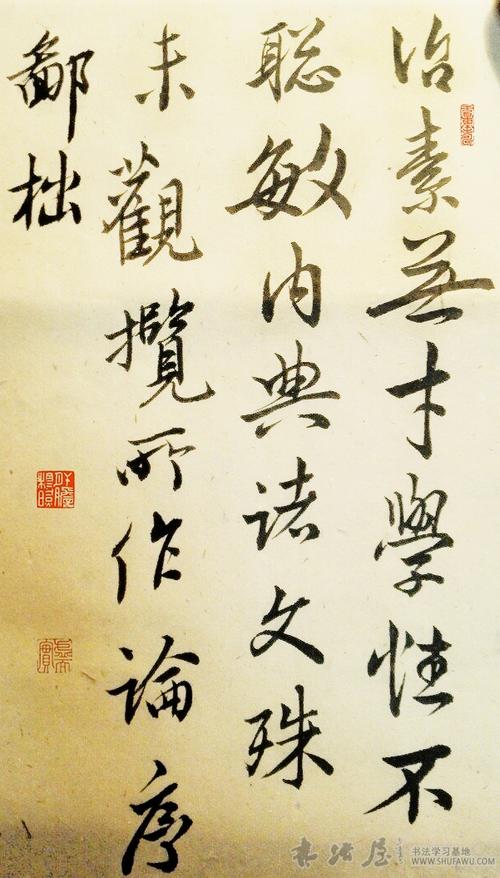 治素無才學性不
聰敏內典諸文殊
未觀攬所作論序
鄙拙
书法屋
书法学习基地
WWW.SHUFAWU.COM